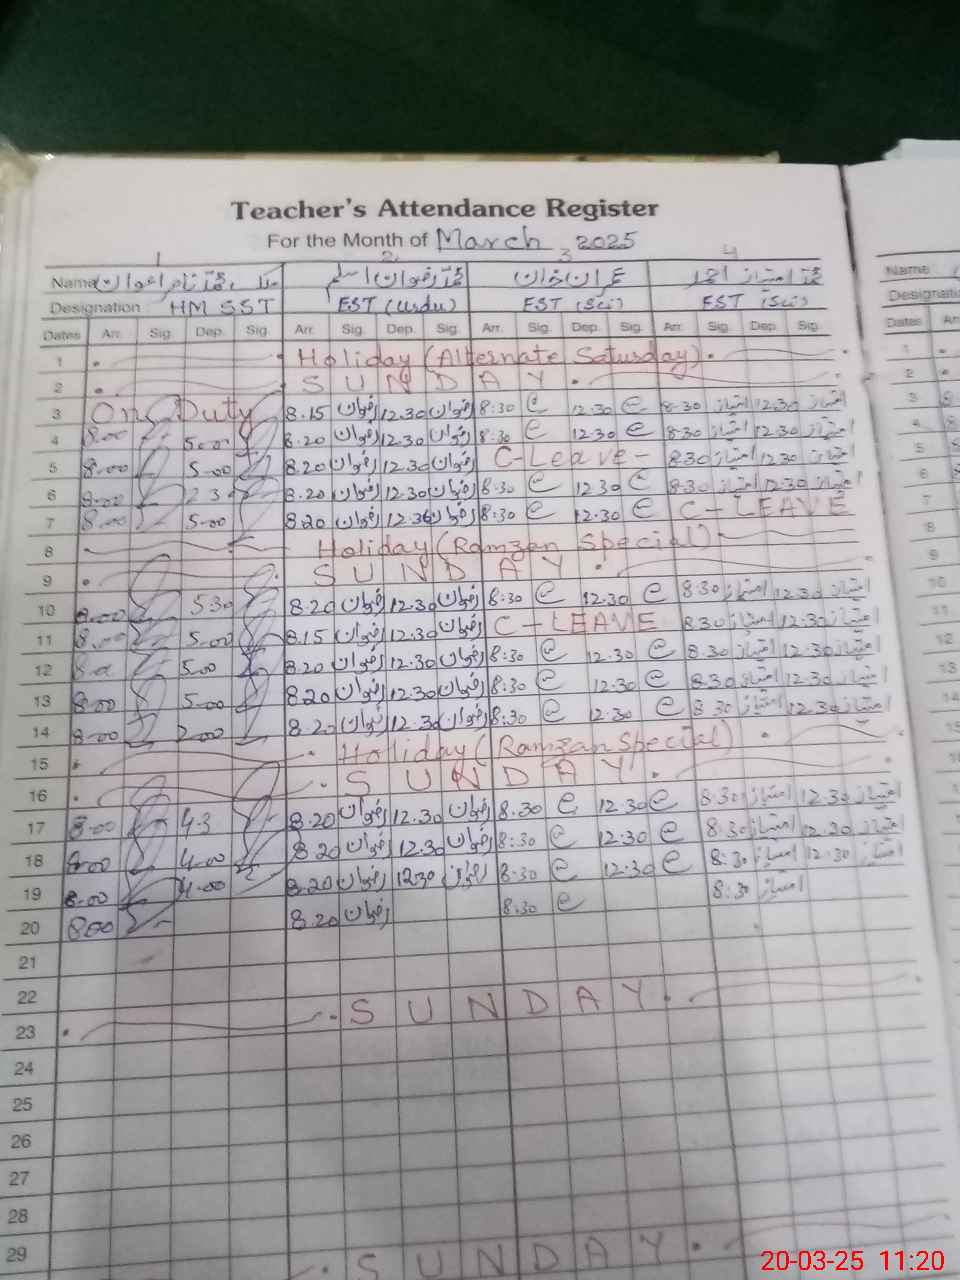 Teacher's Attendance Register
For the Month of March 2025
1 2 3 4
Name محمد رضوان اسلم عمران خان محمد امتیاز احمد Name
Designation HM SST EST (Urdu) EST (Sci) EST (Sci)
Dates Arr. Sig. Dep. Sig. Arr. Sig. Dep. Sig. Arr. Sig. Dep. Sig. Arr. Sig. Dep. Sig. Dates
1 Holiday (Alternate Saturday) 1
2 SUNDAY 2
3 On Duty 8.15 رضوان 12.30 رضوان 8:30 e 12.30 e 8.30 امتیاز 12.30 امتیاز 3
4 8.00 5.00 8.20 رضوان 12.30 رضوان 8:30 e 12.30 e 8.30 امتیاز 12.30 امتیاز 4
5 8.00 5.00 8.20 رضوان 12.30 رضوان C-Leave- 8.30 امتیاز 12.30 امتیاز 5
6 8.00 8.20 رضوان 12.30 رضوان 8:30 e 12.30 e 8.30 امتیاز 12.30 امتیاز 6
7 8.00 5.00 8.20 رضوان 12.30 رضوان 8:30 e 12.30 e C-LEAVE 7
8 Holiday (Ramzan Special) 8
9 SUNDAY 9
10 8.00 5.30 8.20 رضوان 12.30 رضوان 8:30 e 12.30 e 8.30 امتیاز 12.30 امتیاز 10
11 8.00 5.00 8.15 رضوان 12.30 رضوان C-LEAVE 8.30 امتیاز 12.30 امتیاز 11
12 5.00 8.20 رضوان 12.30 رضوان 8:30 e 12.30 e 8.30 امتیاز 12.30 امتیاز 12
13 8.00 5.00 8.20 رضوان 12.30 رضوان 8:30 e 12.30 e 8.30 امتیاز 12.30 امتیاز 13
14 8.00 2.00 8.20 رضوان 12.30 رضوان 8:30 e 12.30 e 8.30 امتیاز 12.30 امتیاز 14
15 Holiday (Ramzan Special)
16 SUNDAY
17 8.00 8.20 رضوان 12.30 رضوان 8.30 e 12.30 e 8.30 امتیاز 12.30 امتیاز
18 8.00 4.00 8.20 رضوان 12.30 رضوان 8:30 e 12.30 e 8.30 امتیاز 12.30 امتیاز
19 8.00 4.00 8.20 رضوان 12.30 رضوان 8:30 e 12.30 e 8:30 امتیاز 12.30 امتیاز
20 8.00 8.20 رضوان 8:30 e 8:30 امتیاز
21
22
23 SUNDAY
24
25
26
27
28
29
SUNDAY
20-03-25 11:20